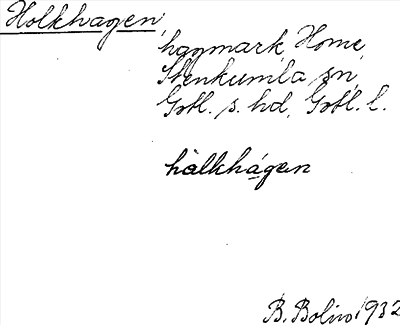 Holkhagen,
hagmark, Home,
Stenkumla sn,
Gotl. s. hd, Gotl. l.
hàlkhágen
B. Bolin 1932